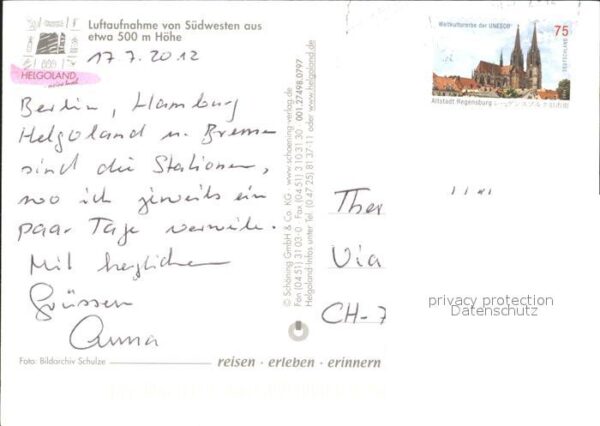 Luftaufnahme von Südwesten aus
etwa 500 m Höhe
HELGOLAND
17.7.2012
Berlin, Hamburg
Helgoland u. Bremen
sind die Stationen,
wo ich jeweils ein
paar Tage verweile.
Mit herzlichen
Grüssen
Anna
Foto: Bildarchiv Schulze
reisen · erleben · erinnern
© Schöning GmbH & Co. KG · www.schoening-verlag.de
Fon (04 51) 31 03-0 · Fax (04 51) 3 10 31 30 · 001.27498.0797
Helgoland-Infos unter Tel. (0 47 25) 81 37-11 oder www.helgoland.de
Weltkulturerbe der UNESCO
75
DEUTSCHLAND
Altstadt Regensburg
Ther
Via
CH-7
privacy protection
Datenschutz